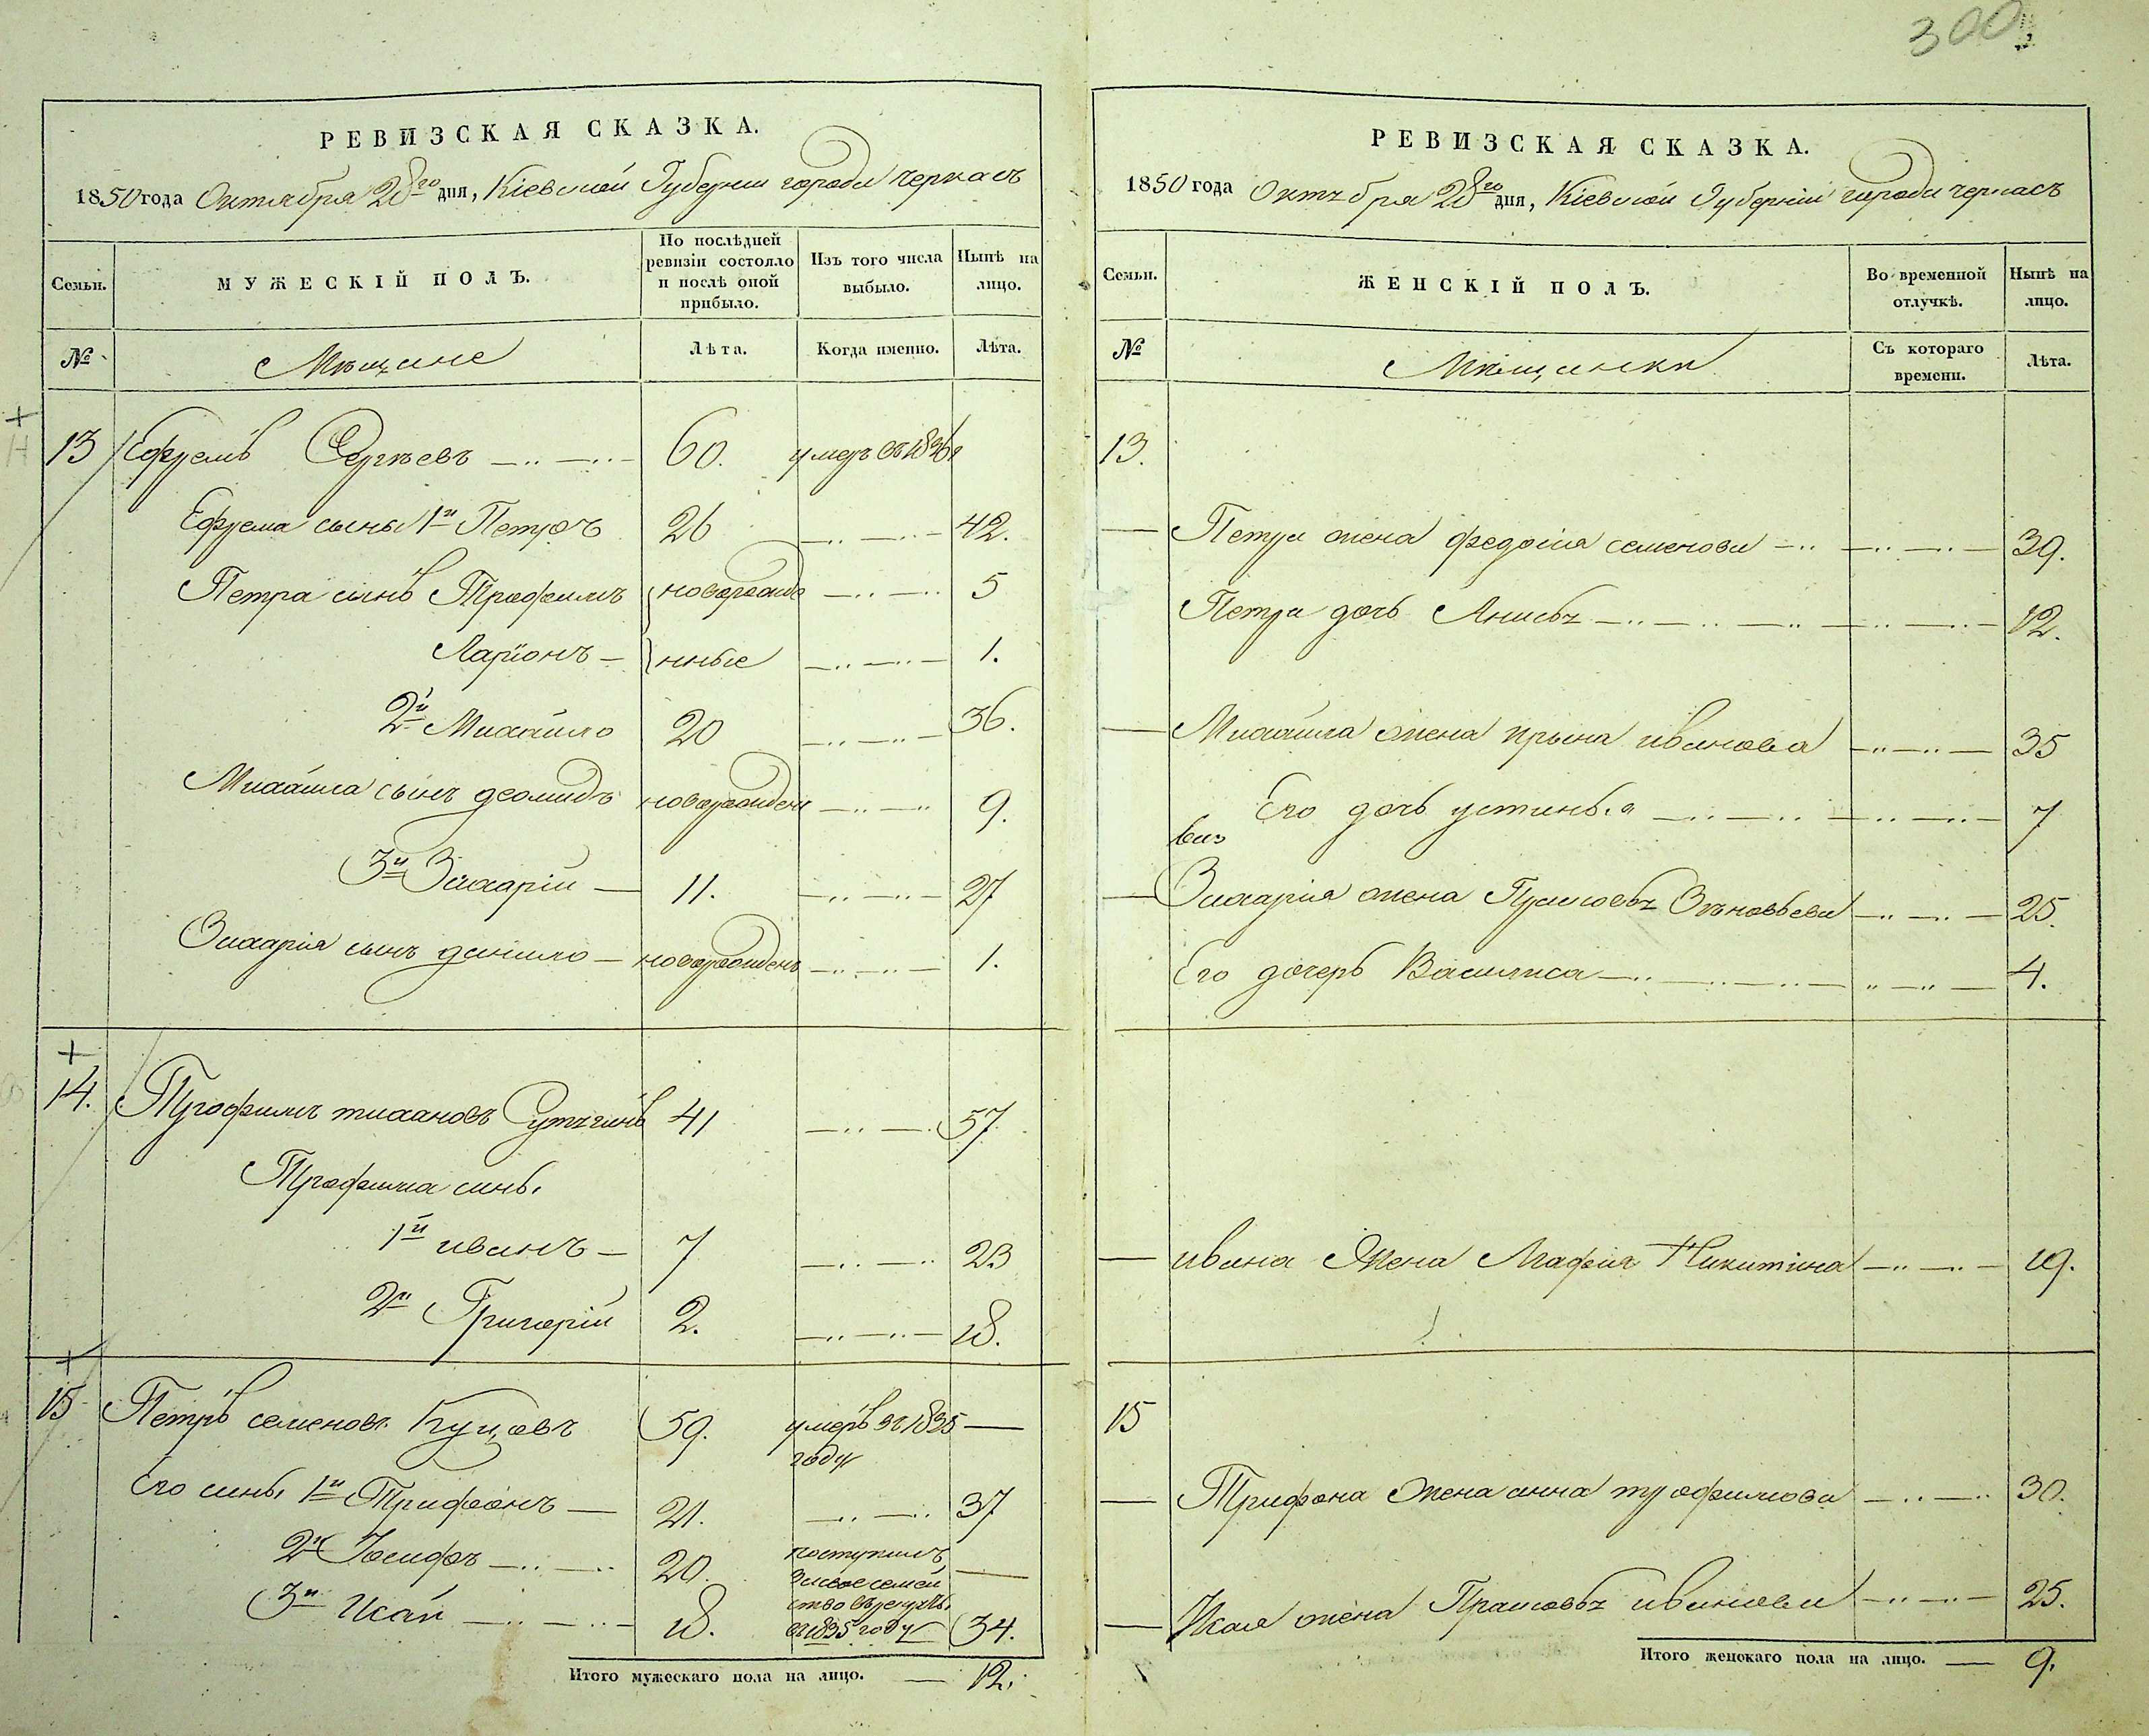 300
РЕВИЗСКАЯ СКАЗКА.
1850 года Октября 28го дня, Кіевской Губерніи города Черкасъ
Семьи.
МУЖЕСКІЙ ПОЛЪ.
По послѣдней
ревизіи состояло
и послѣ оной
прибыло.
Изъ того числа
выбыло.
Нынѣ на
лицо.
№
Мѣщане
Лѣта.
Когда именно.
Лѣта.
13 Ефремъ Сергѣевъ 60. умеръ въ 1836
Ефрема сыны 1й Петръ 26 42.
Петра сынъ Трофимъ новорожде 5
Ларіонъ нные 1.
2й Михайло 20 36.
Михайла сынъ деомидъ новорожден 9.
3й Захарій 11. 27
Захарія сынъ данило новорожденъ 1.
14. Трофимъ тихановъ 41 57
Трофима сины
1й иванъ 7 23
2й Григорій 2. 18.
15 Петръ семеновъ Куцовъ 59. умеръ въ 1835
году
Его сины 1й Трифонъ 21. 37
2й Іосифъ 20. поступилъ
3й Исай 18. въ 1835 году 34.
Итого мужескаго пола на лицо. 12.
РЕВИЗСКАЯ СКАЗКА.
1850 года Октября 28го дня, Кіевской Губерніи города Черкасъ
Семьи.
ЖЕНСКІЙ ПОЛЪ.
Во временной
отлучкѣ.
Нынѣ на
лицо.
№
Мѣщанки
Съ котораго
времени.
Лѣта.
13.
Петра жена федосія семенова 39.
Петра дочь Анисья 12.
Михайла жена ирына иванова 35
Его дочь устинья 7
Захарія жена Прасковья Зѣновьева 25.
Его дочерь Василиса 4.
ивана Жена Агафия Никитина 19.
15
Трифона Жена анна трофимова 30.
Исая жена Прасковья иванова 25.
Итого женскаго пола на лицо. 9.